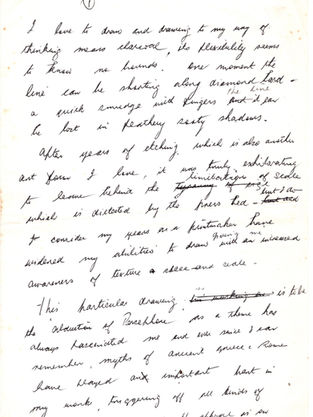 1
I have to draw and drawing to my way of
thinking means charcoal, its flexibility seems
to know no bounds. One moment the
line can be shooting along diamond hard -
a quick smudge with fingers and the line can
be lost in feathery sooty shadows.
After years of etching, which is also another
art form I love, it was truly exhilarating
to leave behind the limitations of scale
which is dictated by the press bed - but I do
consider my years as a printmaker have
widened my abilities to draw giving me an increased
awareness of texture and scale.
This particular drawing is to be
the abduction of Persephone as a theme has
always fascinated me and ever since I can
remember, myths of ancient Greece & Rome
have played an important part in
my work, triggering off all kinds of